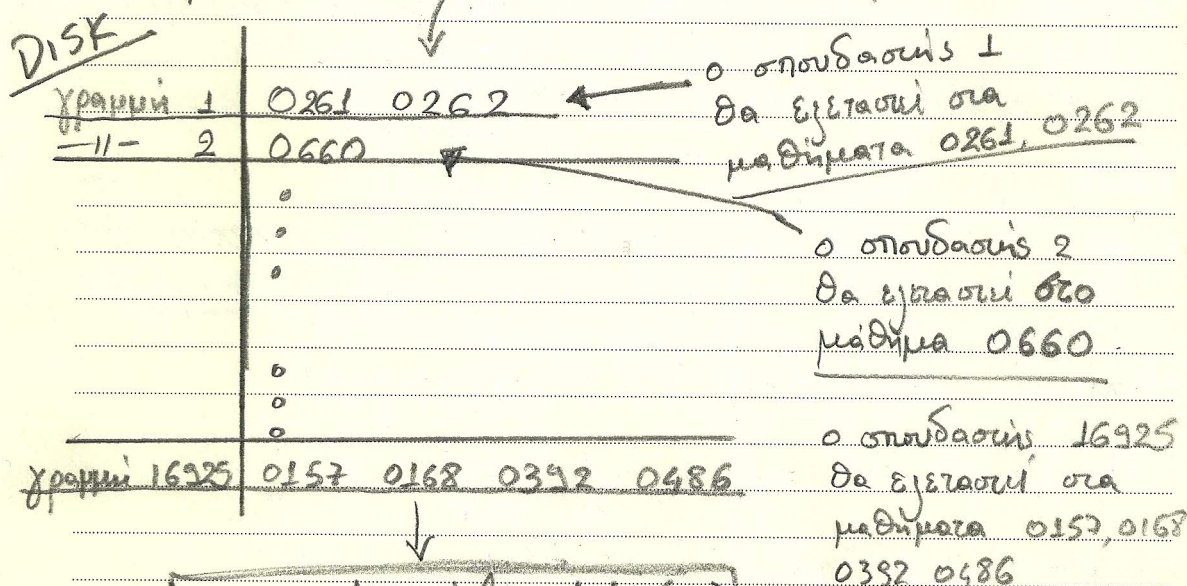 DISK
γραμμή 1 0261 0262
—11— 2 0660
γραμμή 16925 0157 0168 0392 0486
ο σπουδαστής 1
θα εξεταστεί στα
μαθήματα 0261, 0262
ο σπουδαστής 2
θα εξεταστεί στο
μάθημα 0660
ο σπουδαστής 16925
θα εξεταστεί στα
μαθήματα 0157, 0168
0392 0486